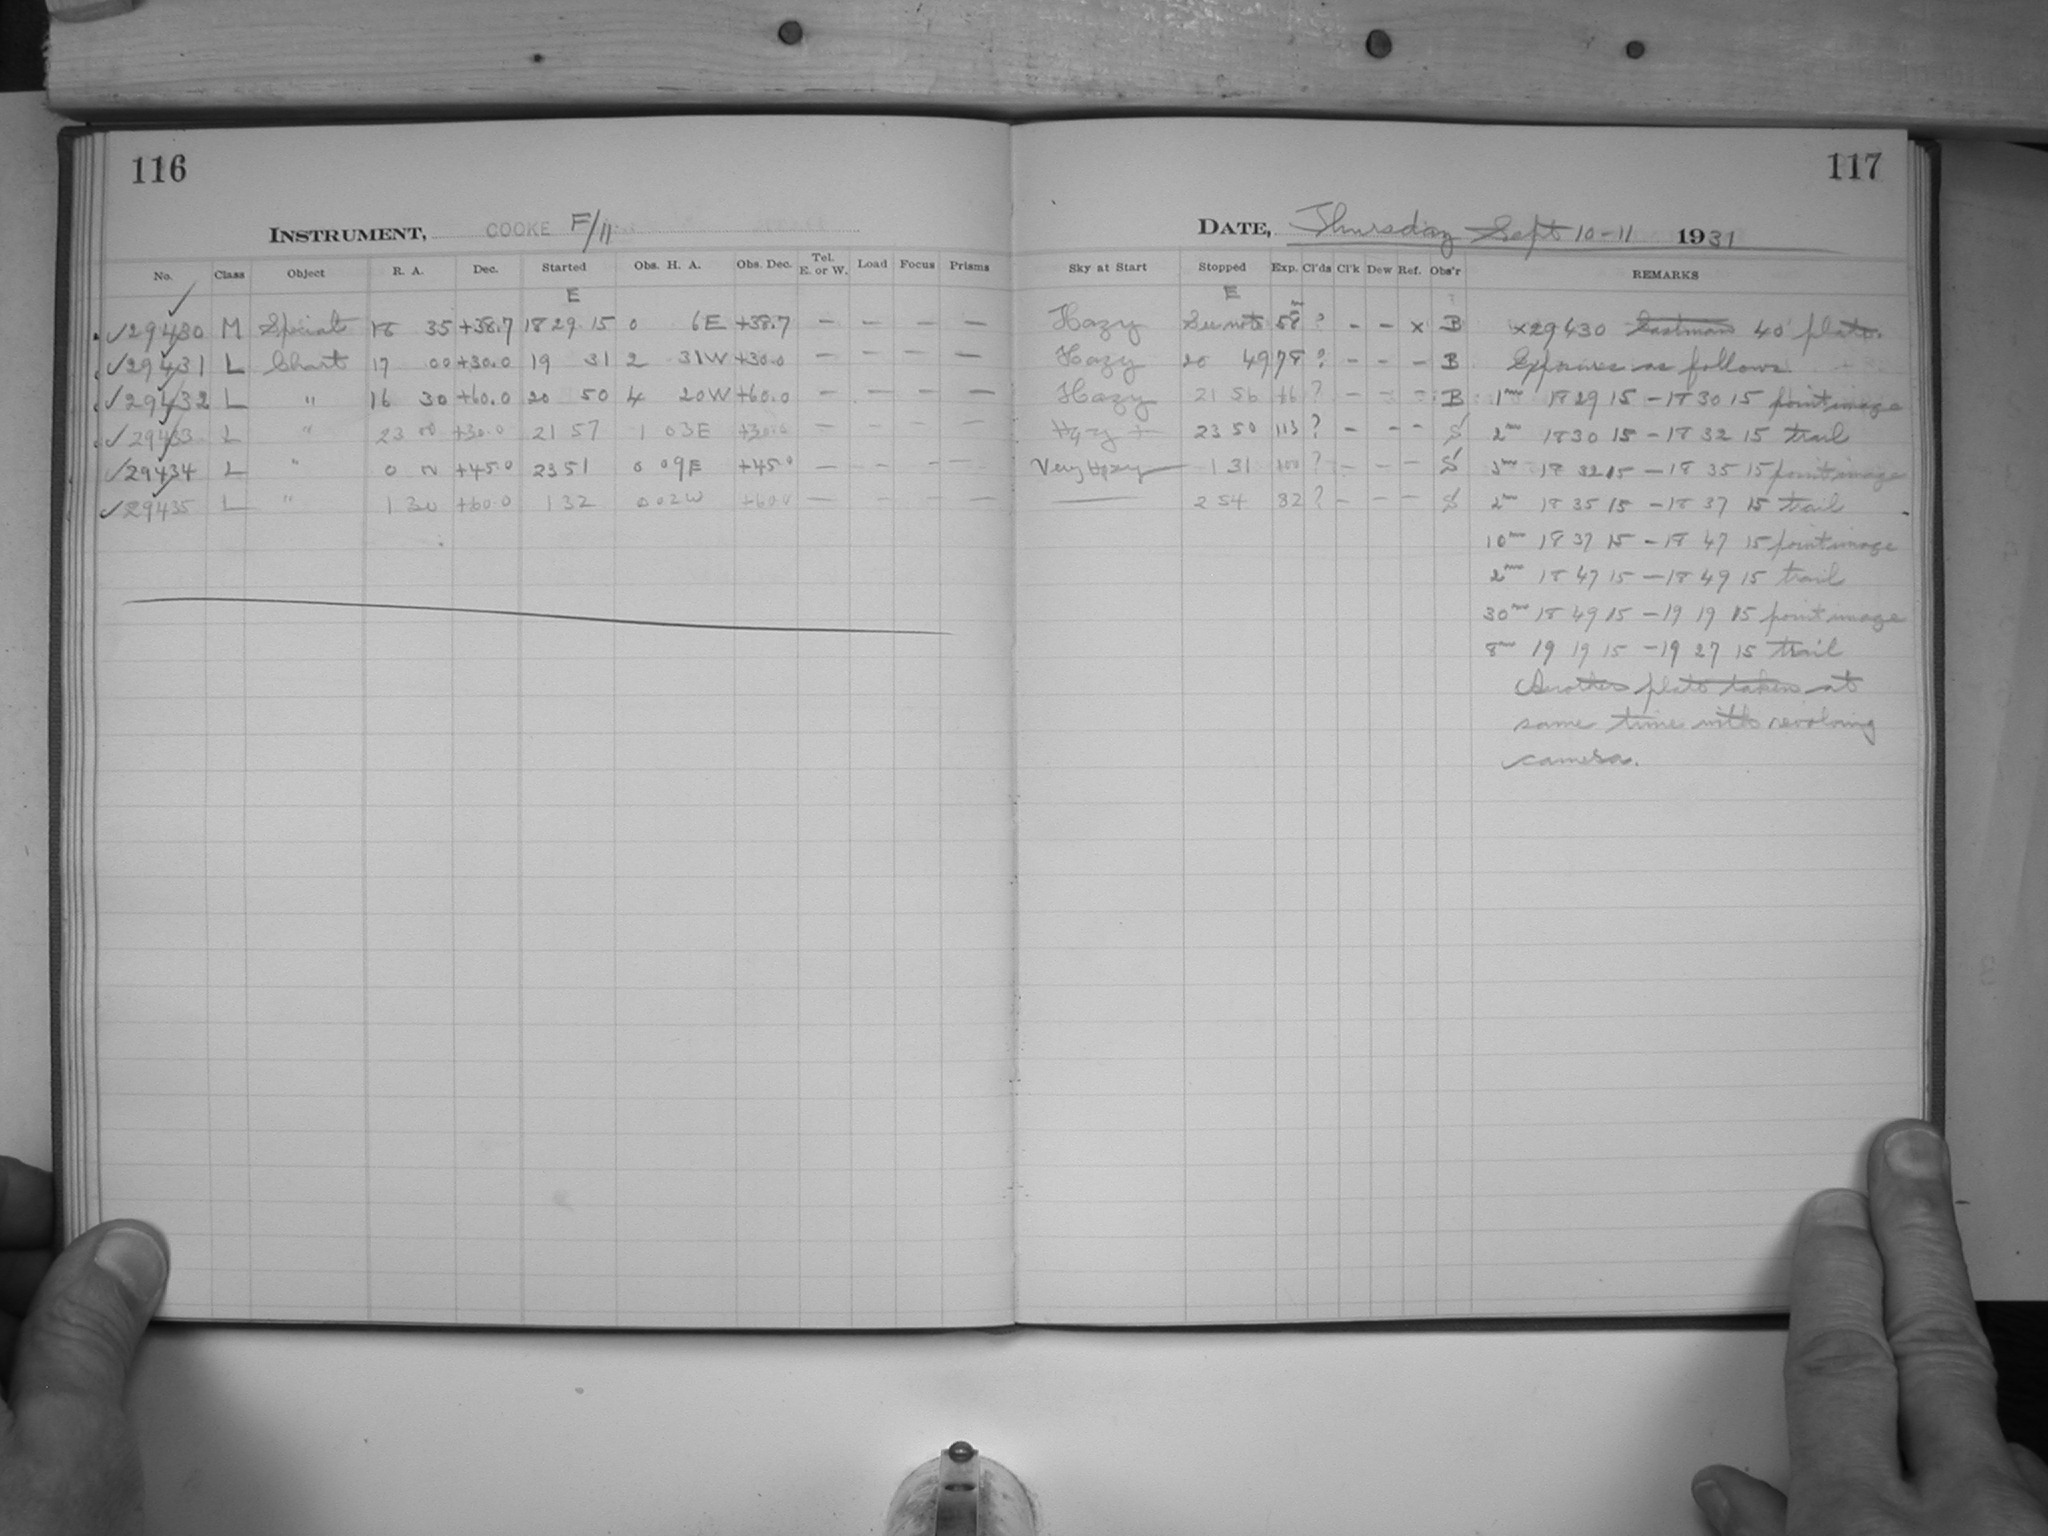 116
117
INSTRUMENT, COOKE F/11
DATE, Thursday Sept 10-11 1931
No. Class Object R. A. Dec. Started Obs. H. A. Obs. Dec. Tel. E. or W. Load Focus Prisms
Sky at Start Stopped Exp. Cl'ds Cl'k Dew Ref. Obs'r REMARKS
E E
✓29430 M Special 18 35 +38.7 18 29 15 0 6E +38.7 — — — — Hazy See note 58m ? - - x B x29430 Eastman 40 plate.
✓29431 L Chart 17 00 +30.0 19 31 2 31W +30.0 — — — — Hazy 20 49 78 ? - - - B Exposures as follows.
✓29432 L " 16 30 +60.0 20 50 4 20W +60.0 — — — — Hazy 21 56 66 ? - - - B 1m 18 29 15 - 18 30 15 point image
✓29433 L " 23 00 +30.0 21 57 1 03E +30.0 — — — — Hazy 23 50 113 ? - - - S 2m 18 30 15 - 18 32 15 trail
✓29434 L " 0 00 +45.0 23 51 0 09E +45.0 — — — — Very Hazy 1 31 100 ? - - - S 3m 18 32 15 - 18 35 15 point image
✓29435 L " 1 30 +60.0 1 32 0 02W +60.0 — — — — —— 2 54 82 ? - - - S 2m 18 35 15 - 18 37 15 trail
10m 18 37 15 - 18 47 15 point image
2m 18 47 15 - 18 49 15 trail
30m 18 49 15 - 19 19 15 point image
8m 19 19 15 - 19 27 15 trail
Another plate taken at
same time with revolving
camera.